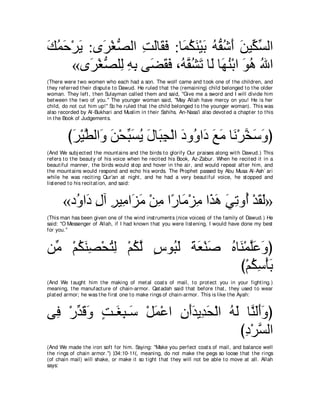 يَرْحَمُكَ اللهُ هُوَ ابْنُهَا لَا تَشُقَّهُ، فَقَضَى بِهِ لِلصُّغْرَى»
(There were two women who each had a son. The wolf came and took one of the children, and
they referred their dispute to Dawud. He ruled that the (remaining) child belonged to the older
woman. They left, then Sulayman called them and said, "Give me a sword and I will divide him
between the two of you.'' The younger woman said, "May Allah have mercy on you! He is her
child, do not cut him up!'' So he ruled that the child belonged to the younger woman). This was
also recorded by Al-Bukhari and Muslim in their Sahihs. An-Nasa'i also devoted a chapter to this
in the Book of Judgements.
(وَسَخَّرْنَا مَعَ دَاوُودَ الْجِبَالَ يُسَبِّحْنَ وَالطَّيْرَ)
(And We subjected the mountains and the birds to glorify Our praises along with Dawud.) This
refers to the beauty of his voice when he recited his Book, Az-Zabur. When he recited it in a
beautiful manner, the birds would stop and hover in the air, and would repeat after him, and
the mountains would respond and echo his words. The Prophet passed by Abu Musa Al-Ash`ari
while he was reciting Qur'an at night, and he had a very beautiful voice, he stopped and
listened to his recitation, and said:
«لَقَدْ أُوتِيَ هَذَا مِزْمَارًا مِنْ مَزَامِيرِ آلِ دَاوُدَ»
(This man has been given one of the wind instruments (nice voices) of the family of Dawud.) He
said: "O Messenger of Allah, if I had known that you were listening, I would have done my best
for you.''
(وَعَلَّمْنَاهُ صَنْعَةَ لَبُوسٍ لَّكُمْ لِتُحْصِنَكُمْ مِّن
بَأْسِكُمْ)
(And We taught him the making of metal coats of mail, to protect you in your fighting.)
meaning, the manufacture of chain-armor. Qatadah said that before that, they used to wear
plated armor; he was the first one to make rings of chain-armor. This is like the Ayah:
(وَأَلَنَّا لَهُ الْحَدِيدَأَنِ اعْمَلْ سَـبِـغَـتٍ وَقَدِّرْ فِى
السَّرْدِ)
(And We made the iron soft for him. Saying: "Make you perfect coats of mail, and balance well
the rings of chain armor.'') (34:10-11(, meaning, do not make the pegs so loose that the rings
(of chain mail) will shake, or make it so tight that they will not be able to move at all. Allah
says: